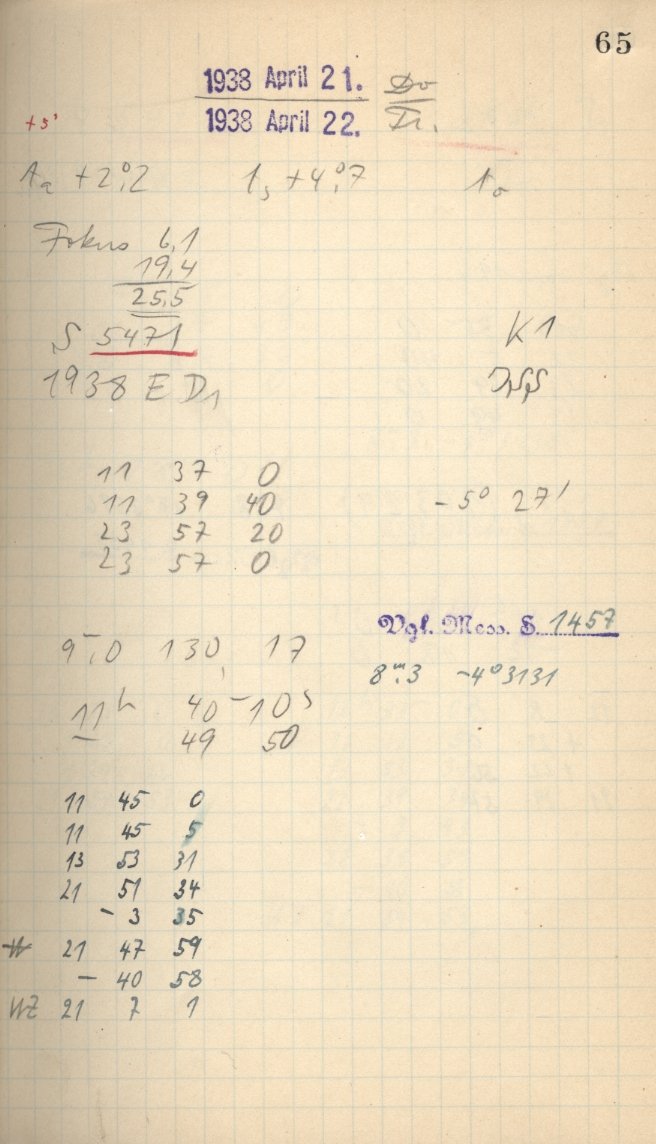 65
1938 April 21. Do
1938 April 22. Fr.
+5'
ta +2°,2 ts +4°,7 to
Fokus 6,1
19,4
25,5
S 5471 K1
1938 E D1
11 37 0
11 39 40 -5° 27'
23 57 20
23 57 0
Vgl. Mess. S. 1457
9m,0 130, 17
8m.3 -4°3131
11h 40m 10s
49 50
11 45 0
11 45 5
13 53 31
21 51 34
- 3 35
21 47 59
- 40 58
WZ 21 7 1